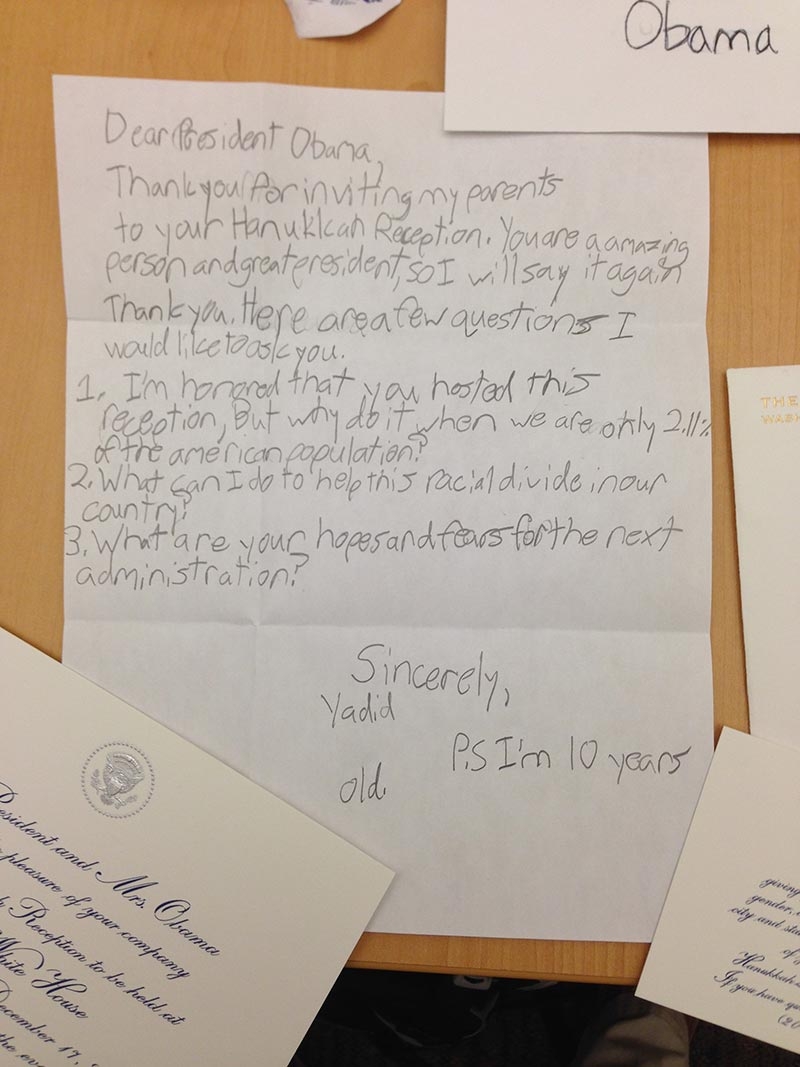 Obama
Dear President Obama,
Thank you for inviting my parents
to your Hanukkah Reception. You are a amazing
person and great president, so I will say it again
Thank you. Here are a few questions I
would like to ask you.
1. I'm honored that you hosted this
reception, But why do it when we are only 2.11%
of the american population?
2. What can I do to help this racial divide in our
country?
3. What are your hopes and fears for the next
administration?
Sincerely,
Yadid
P.S I'm 10 years
old.
THE
WASH
resident and Mrs. Obama
pleasure of your company
Reception to be held at
White House
December 17,
the eve
giving
gender,
city and sta
of
Hanukkah
If you have qu
(20